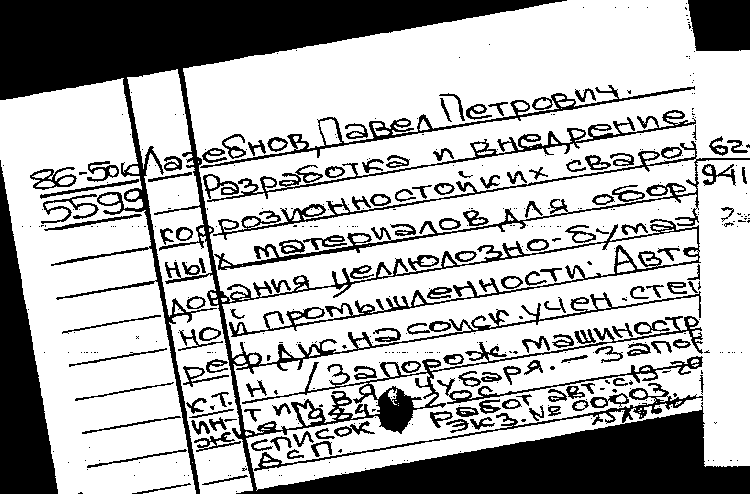 86-50к Лазебнов, Павел Петрович.
5599 Разработка и внедрение
коррозионностойких свароч
ных материалов для обору
дования целлюлозно-бумаж
ной промышленности: Авто
реф. дис. на соиск. учен. степ
к.т.н. / Запорож. машиностр
ин-т им. В.Я. Чубаря. — Запор
ожье, 1984.
список работ авт.: с. 19-20
ДСП. Экз. № 00003.
62-
941